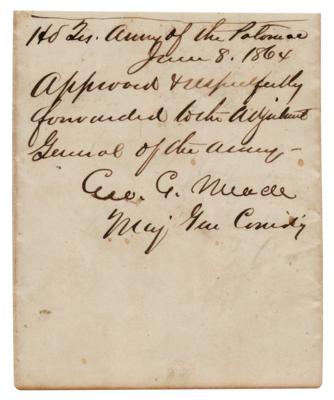 Hd Qrs. Army of the Potomac
June 8. 1864
Approved & respectfully
forwarded to the Adjutant
General of the army –
Geo. G. Meade
Maj Gen Comdg